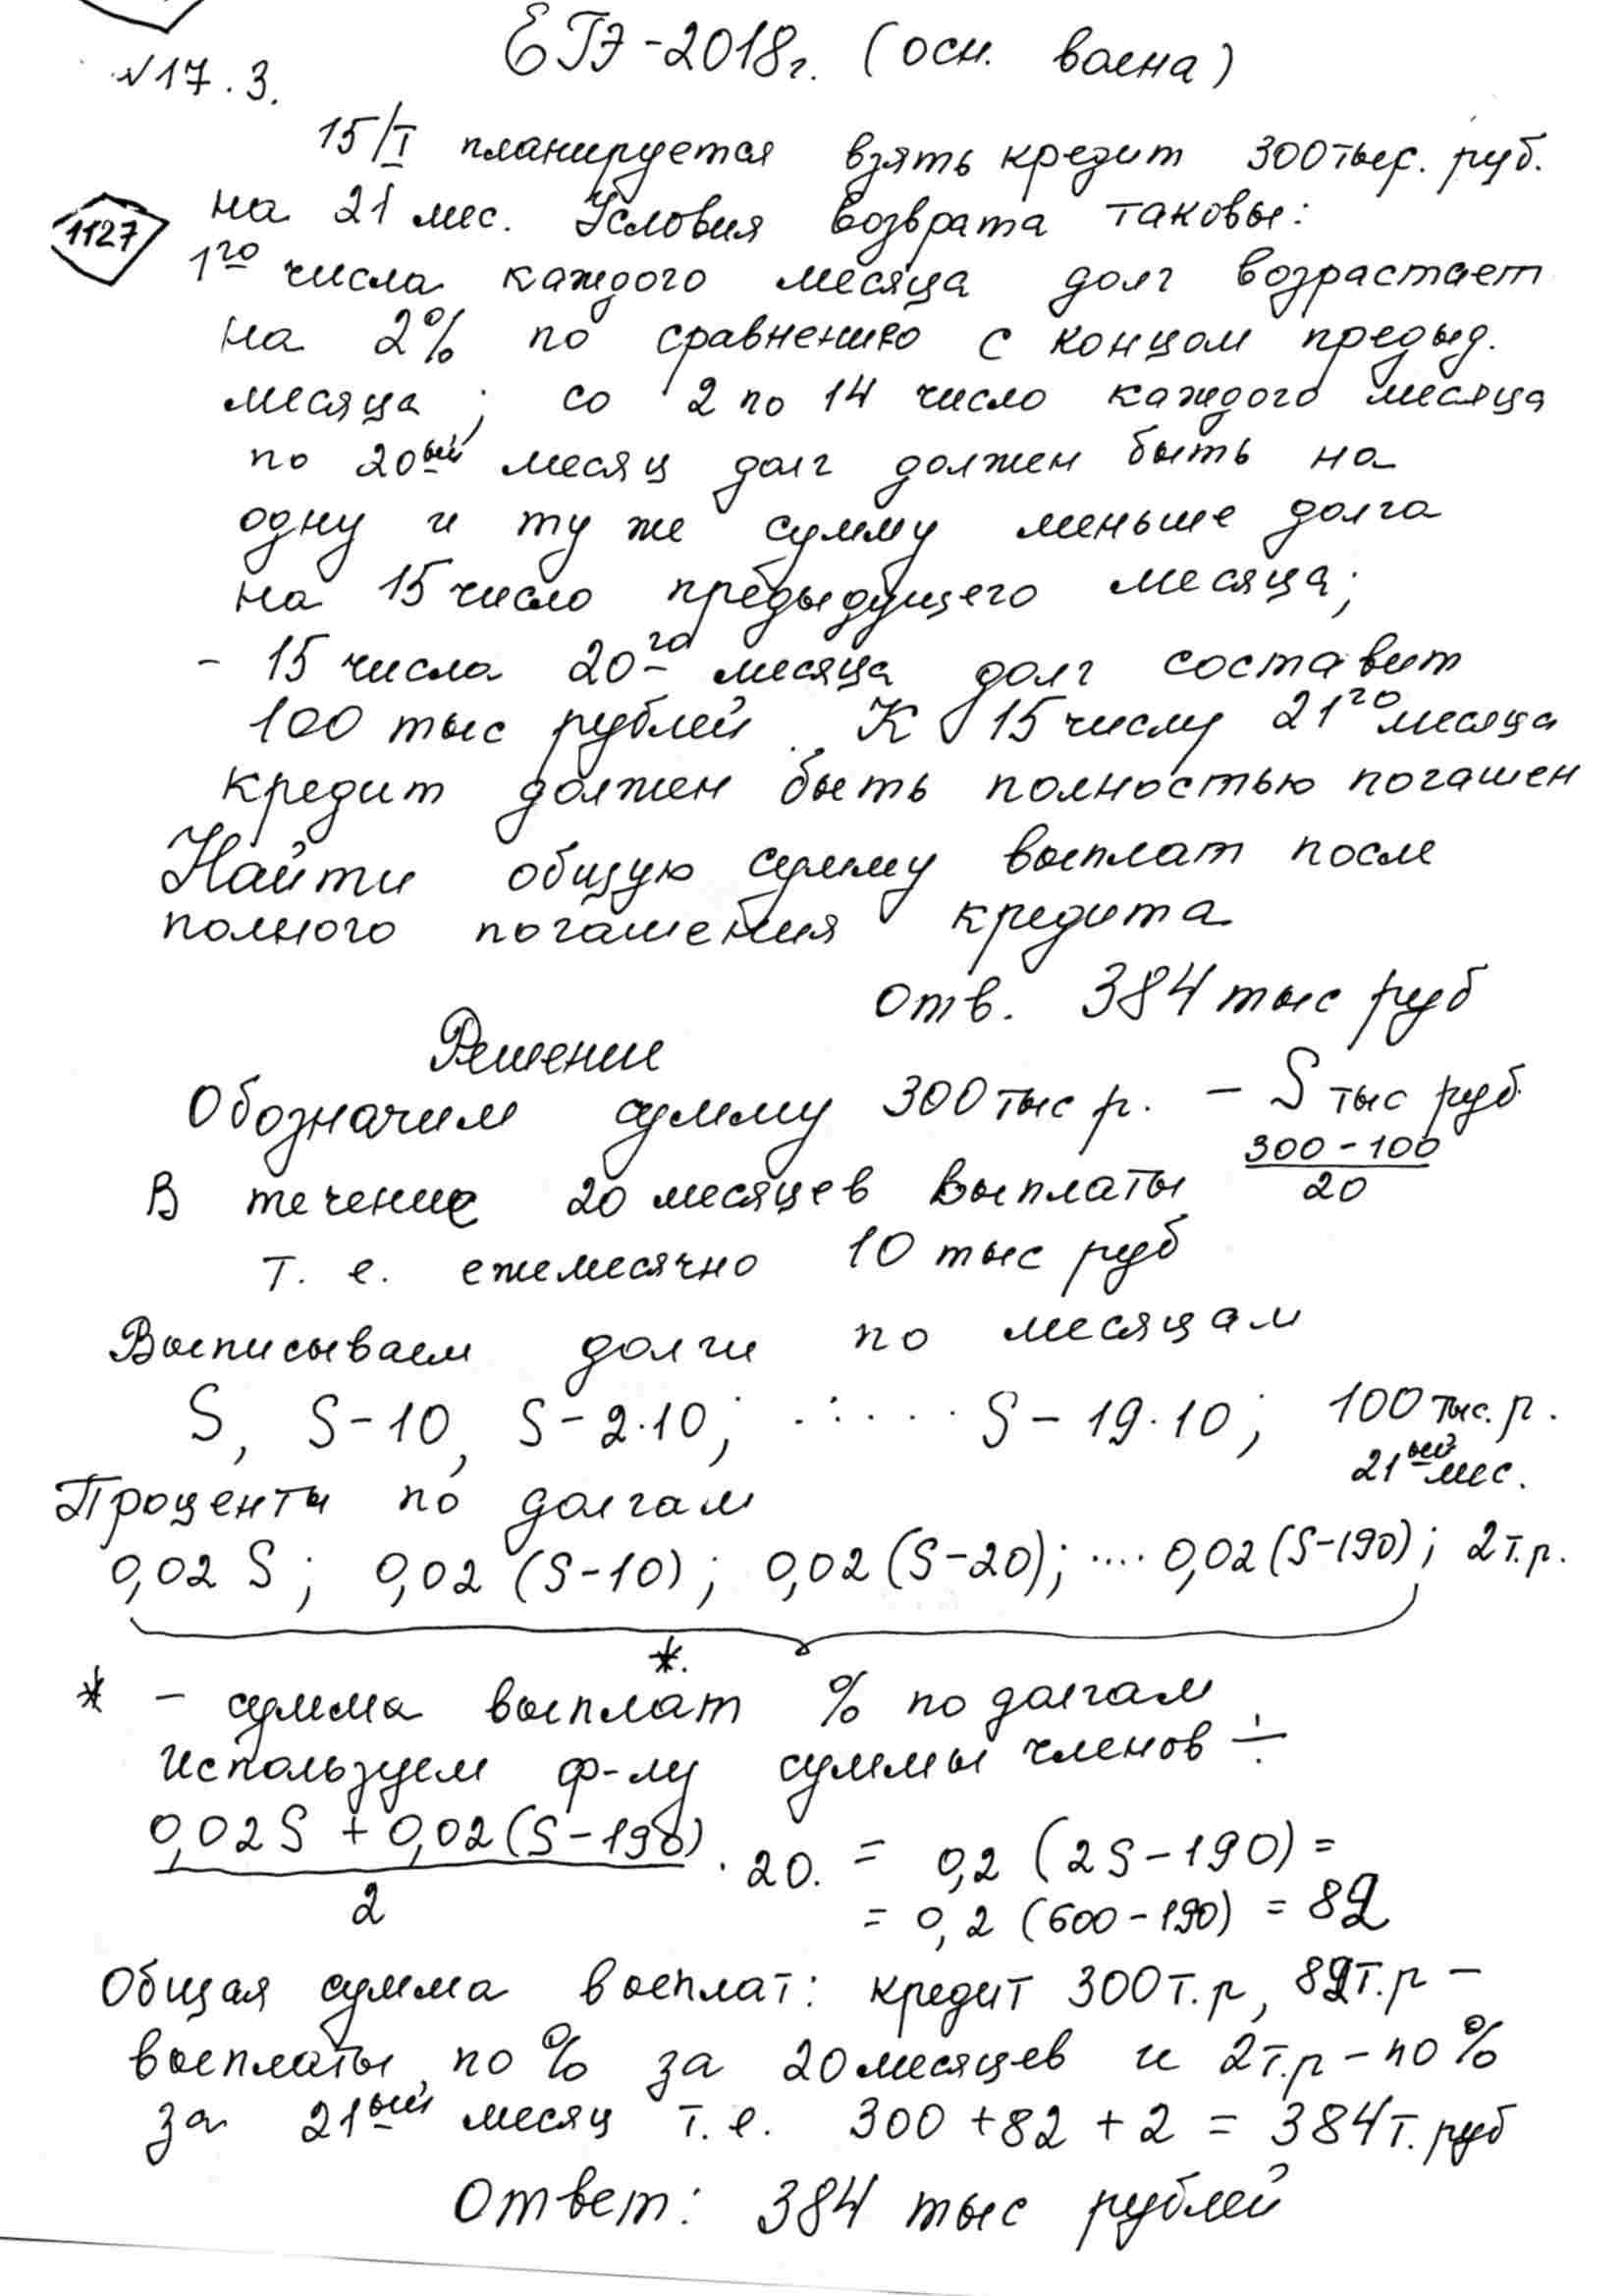 ЕГЭ-2018г. (осн. волна)
№17.3.
15/I планируется взять кредит 300тыс. руб.
на 21 мес. Условия возврата таковы:
1127
1го числа каждого месяца долг возрастает
на 2% по сравнению с концом предыд.
месяца; со 2 по 14 число каждого месяца
по 20ый месяц долг должен быть на
одну и ту же сумму меньше долга
на 15 число предыдущего месяца;
- 15 числа 20го месяца долг составит
100 тыс рублей. К 15 числу 21го месяца
кредит должен быть полностью погашен
Найти общую сумму выплат после
полного погашения кредита
Отв. 384 тыс руб
Решение
Обозначим сумму 300 тыс р. – S тыс руб.
В течение 20 месяцев выплаты (300-100)/20
т. е. ежемесячно 10 тыс руб
Выписываем долги по месяцам
S, S-10, S-2·10; ...... S-19·10; 100 тыс. р.
21ый мес.
Проценты по долгам
0,02 S; 0,02 (S-10); 0,02 (S-20); .... 0,02 (S-190); 2т.р.
*.
* – сумма выплат % по долгам
используем ф-лу суммы членов ÷
(0,02S + 0,02(S-190))/2 · 20. = 0,2 (2S-190) =
= 0,2 (600-190) = 82
Общая сумма выплат: кредит 300т.р, 82т.р –
выплаты по % за 20 месяцев и 2т.р – по %
за 21ый месяц т.е. 300 + 82 + 2 = 384т. руб
Ответ: 384 тыс рублей